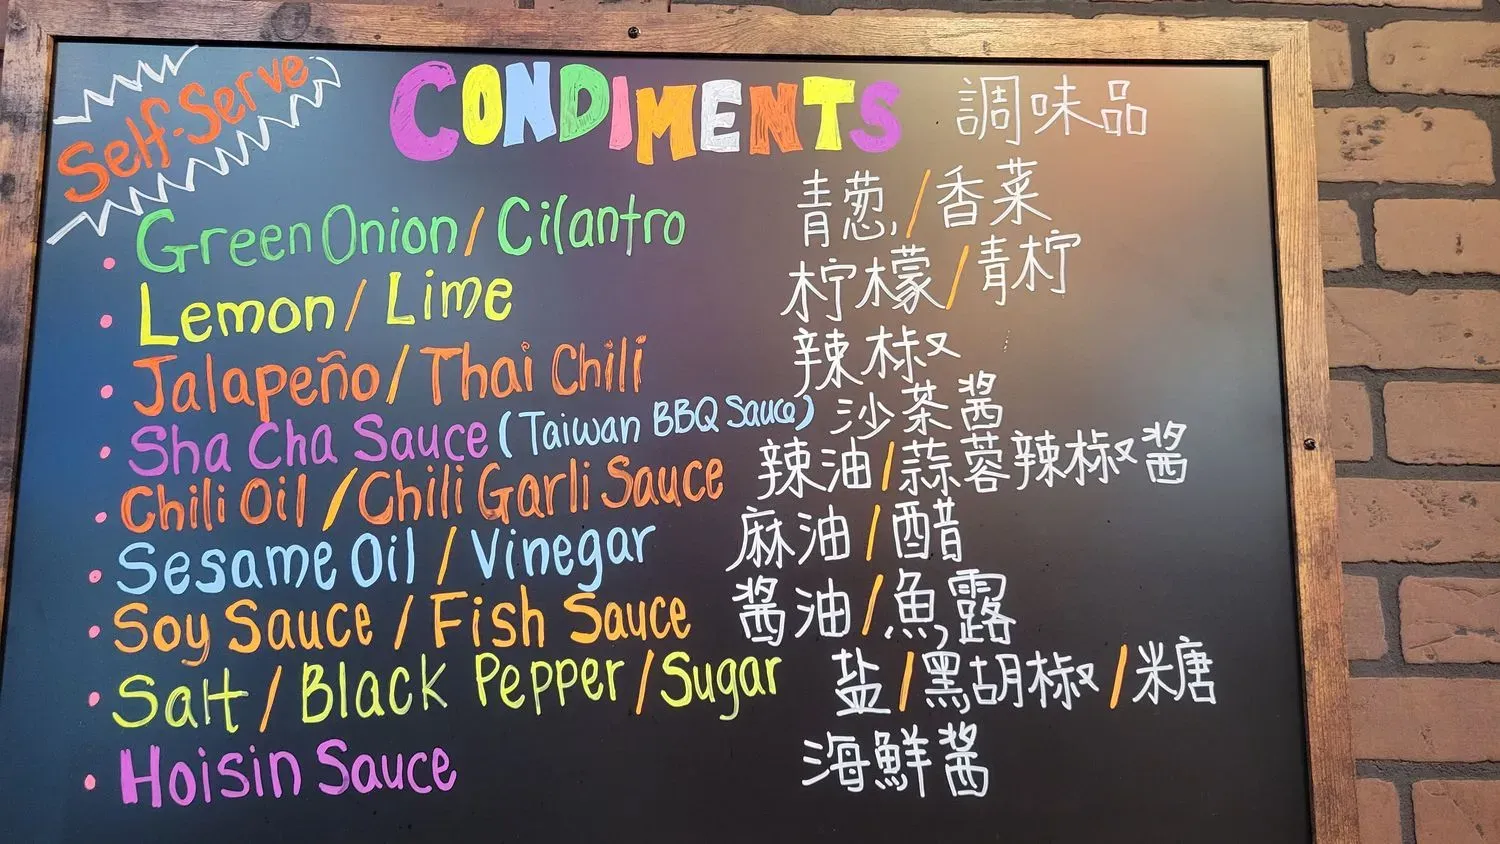 Self-Serve
CONDIMENTS 調味品
Green Onion / Cilantro 青葱/香菜
Lemon / Lime 柠檬/青柠
Jalapeño / Thai Chili 辣椒
Sha Cha Sauce (Taiwan BBQ Sauce) 沙茶酱
Chili Oil / Chili Garli Sauce 辣油/蒜蓉辣椒酱
Sesame Oil / Vinegar 麻油/醋
Soy Sauce / Fish Sauce 酱油/魚露
Salt / Black Pepper / Sugar 盐/黑胡椒/糖
Hoisin Sauce 海鮮酱